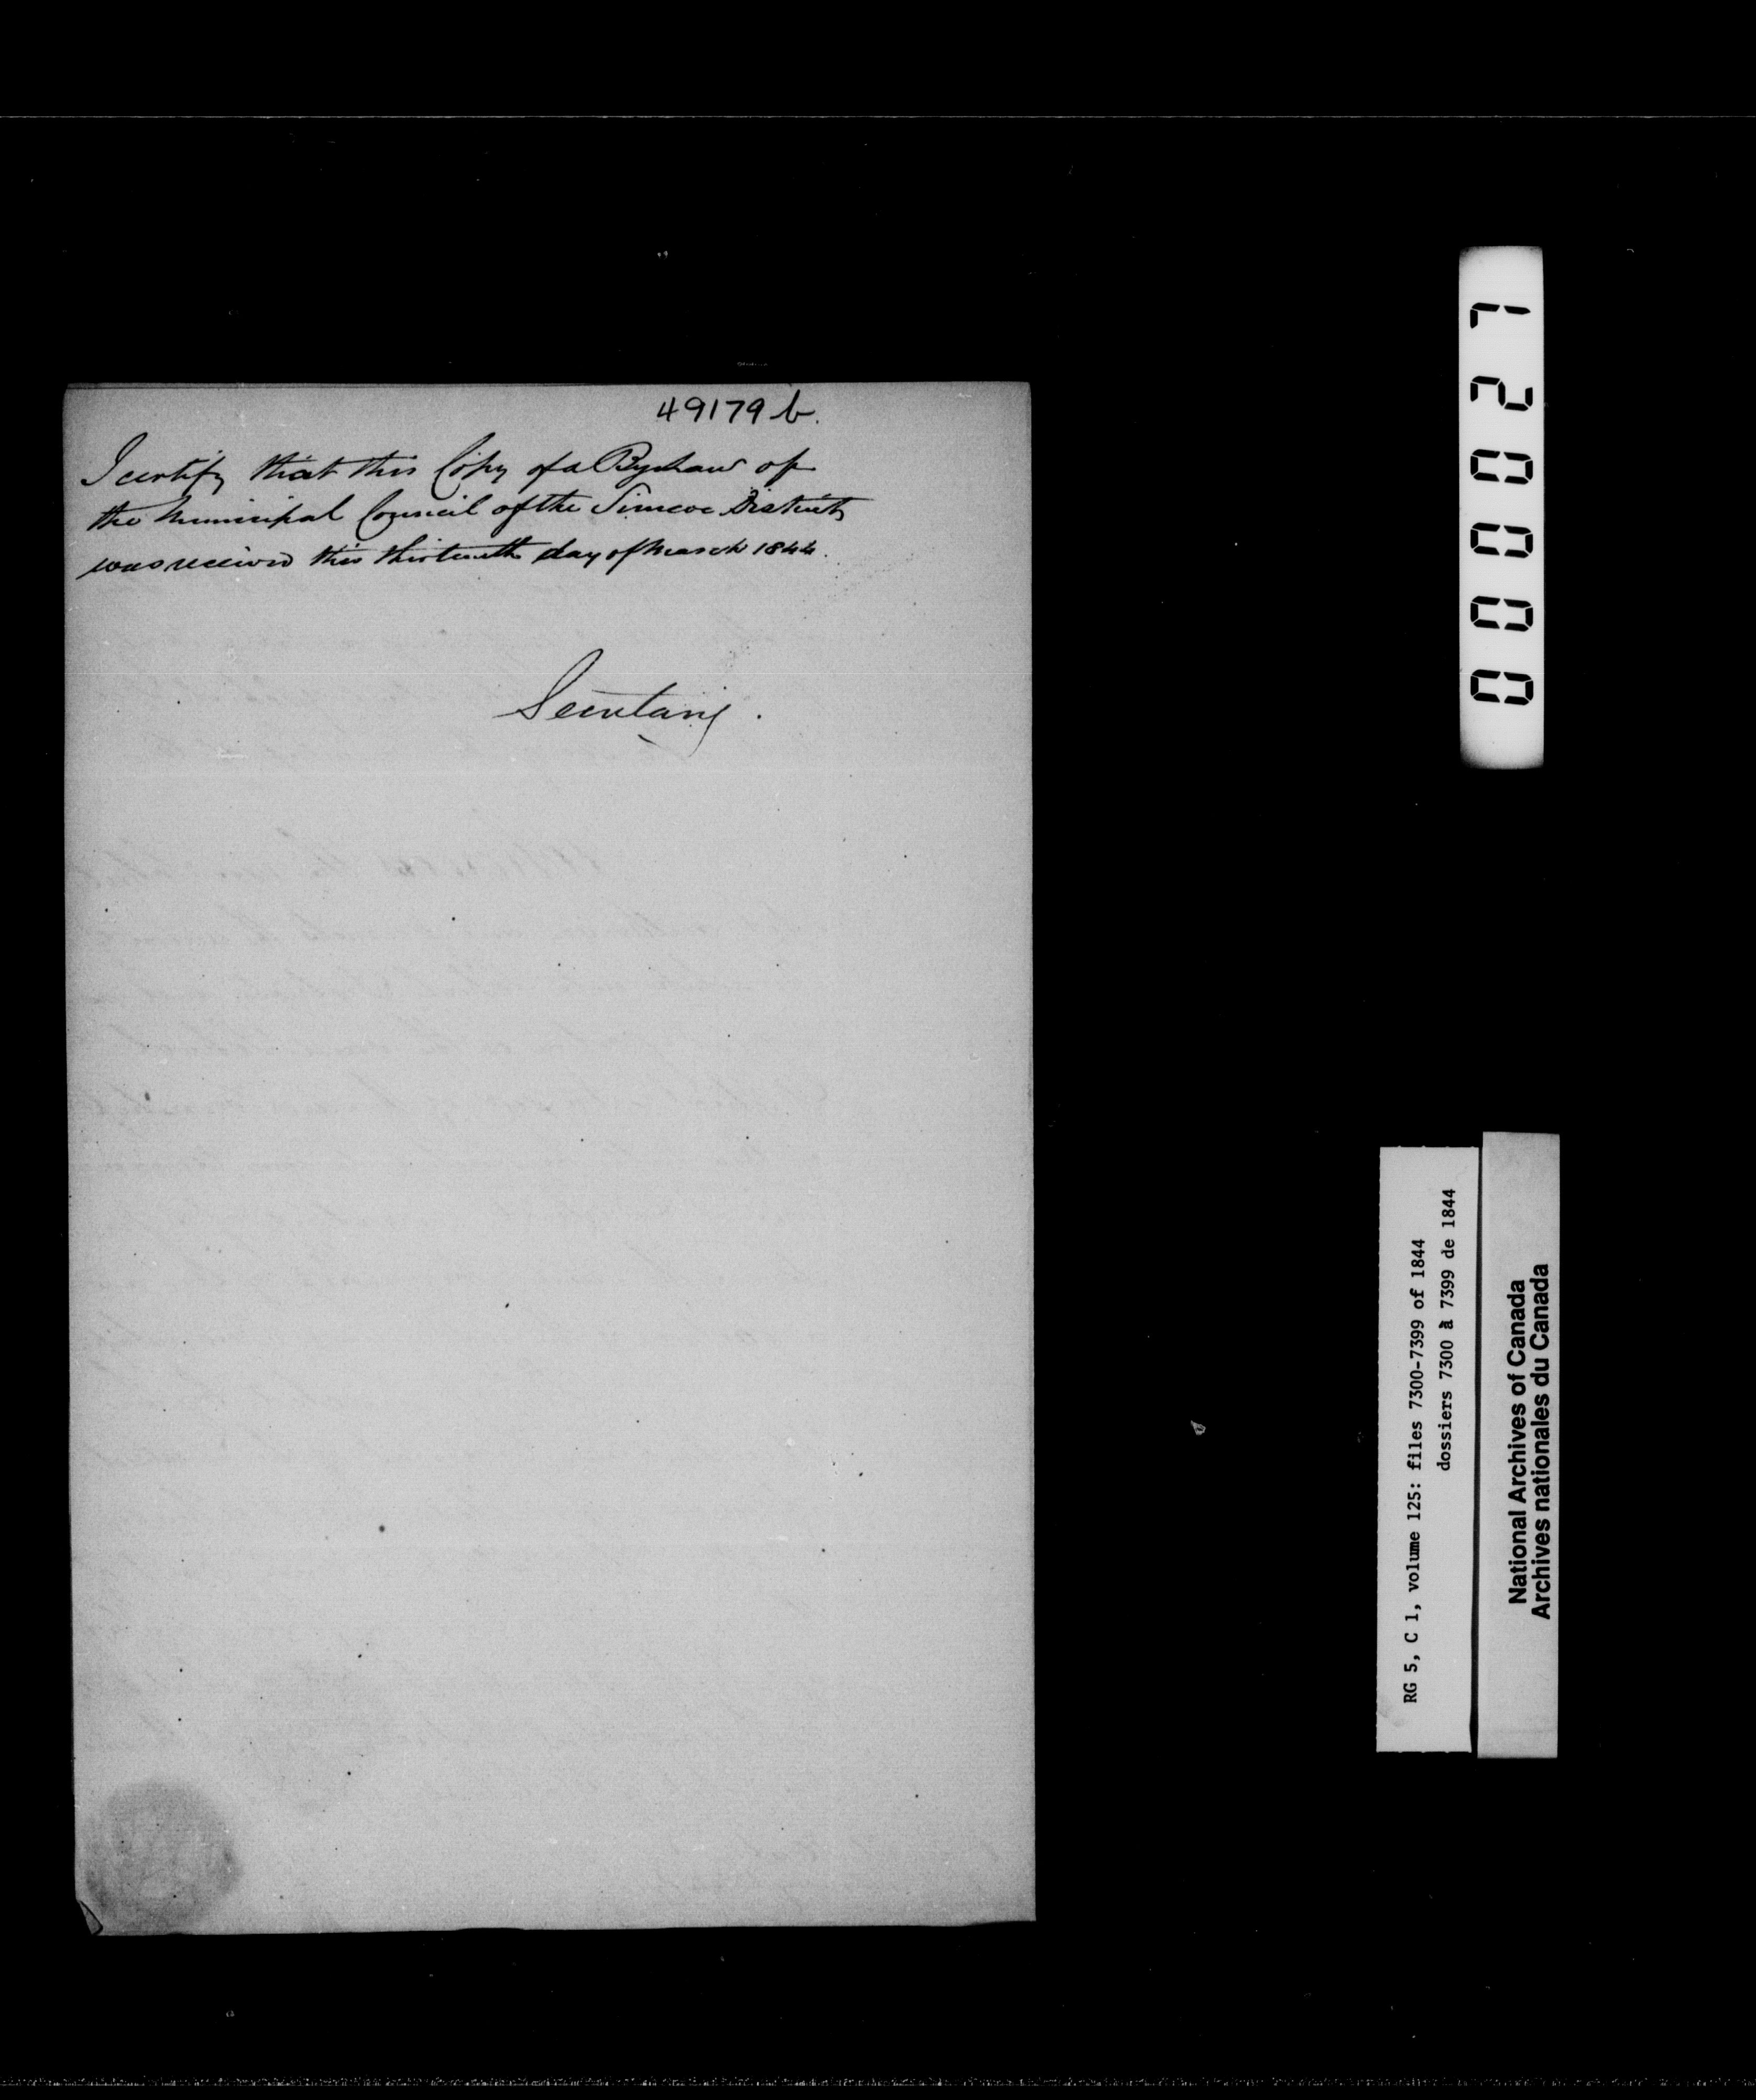 49179 b.
I certify that this Copy of a Bylaw of
the Municipal Council of the Simcoe District
was received this thirteenth day of March 1844.
Secretary.
000027
RG 5, C 1, volume 125: files 7300-7399 of 1844
dossiers 7300 à 7399 de 1844
National Archives of Canada
Archives nationales du Canada